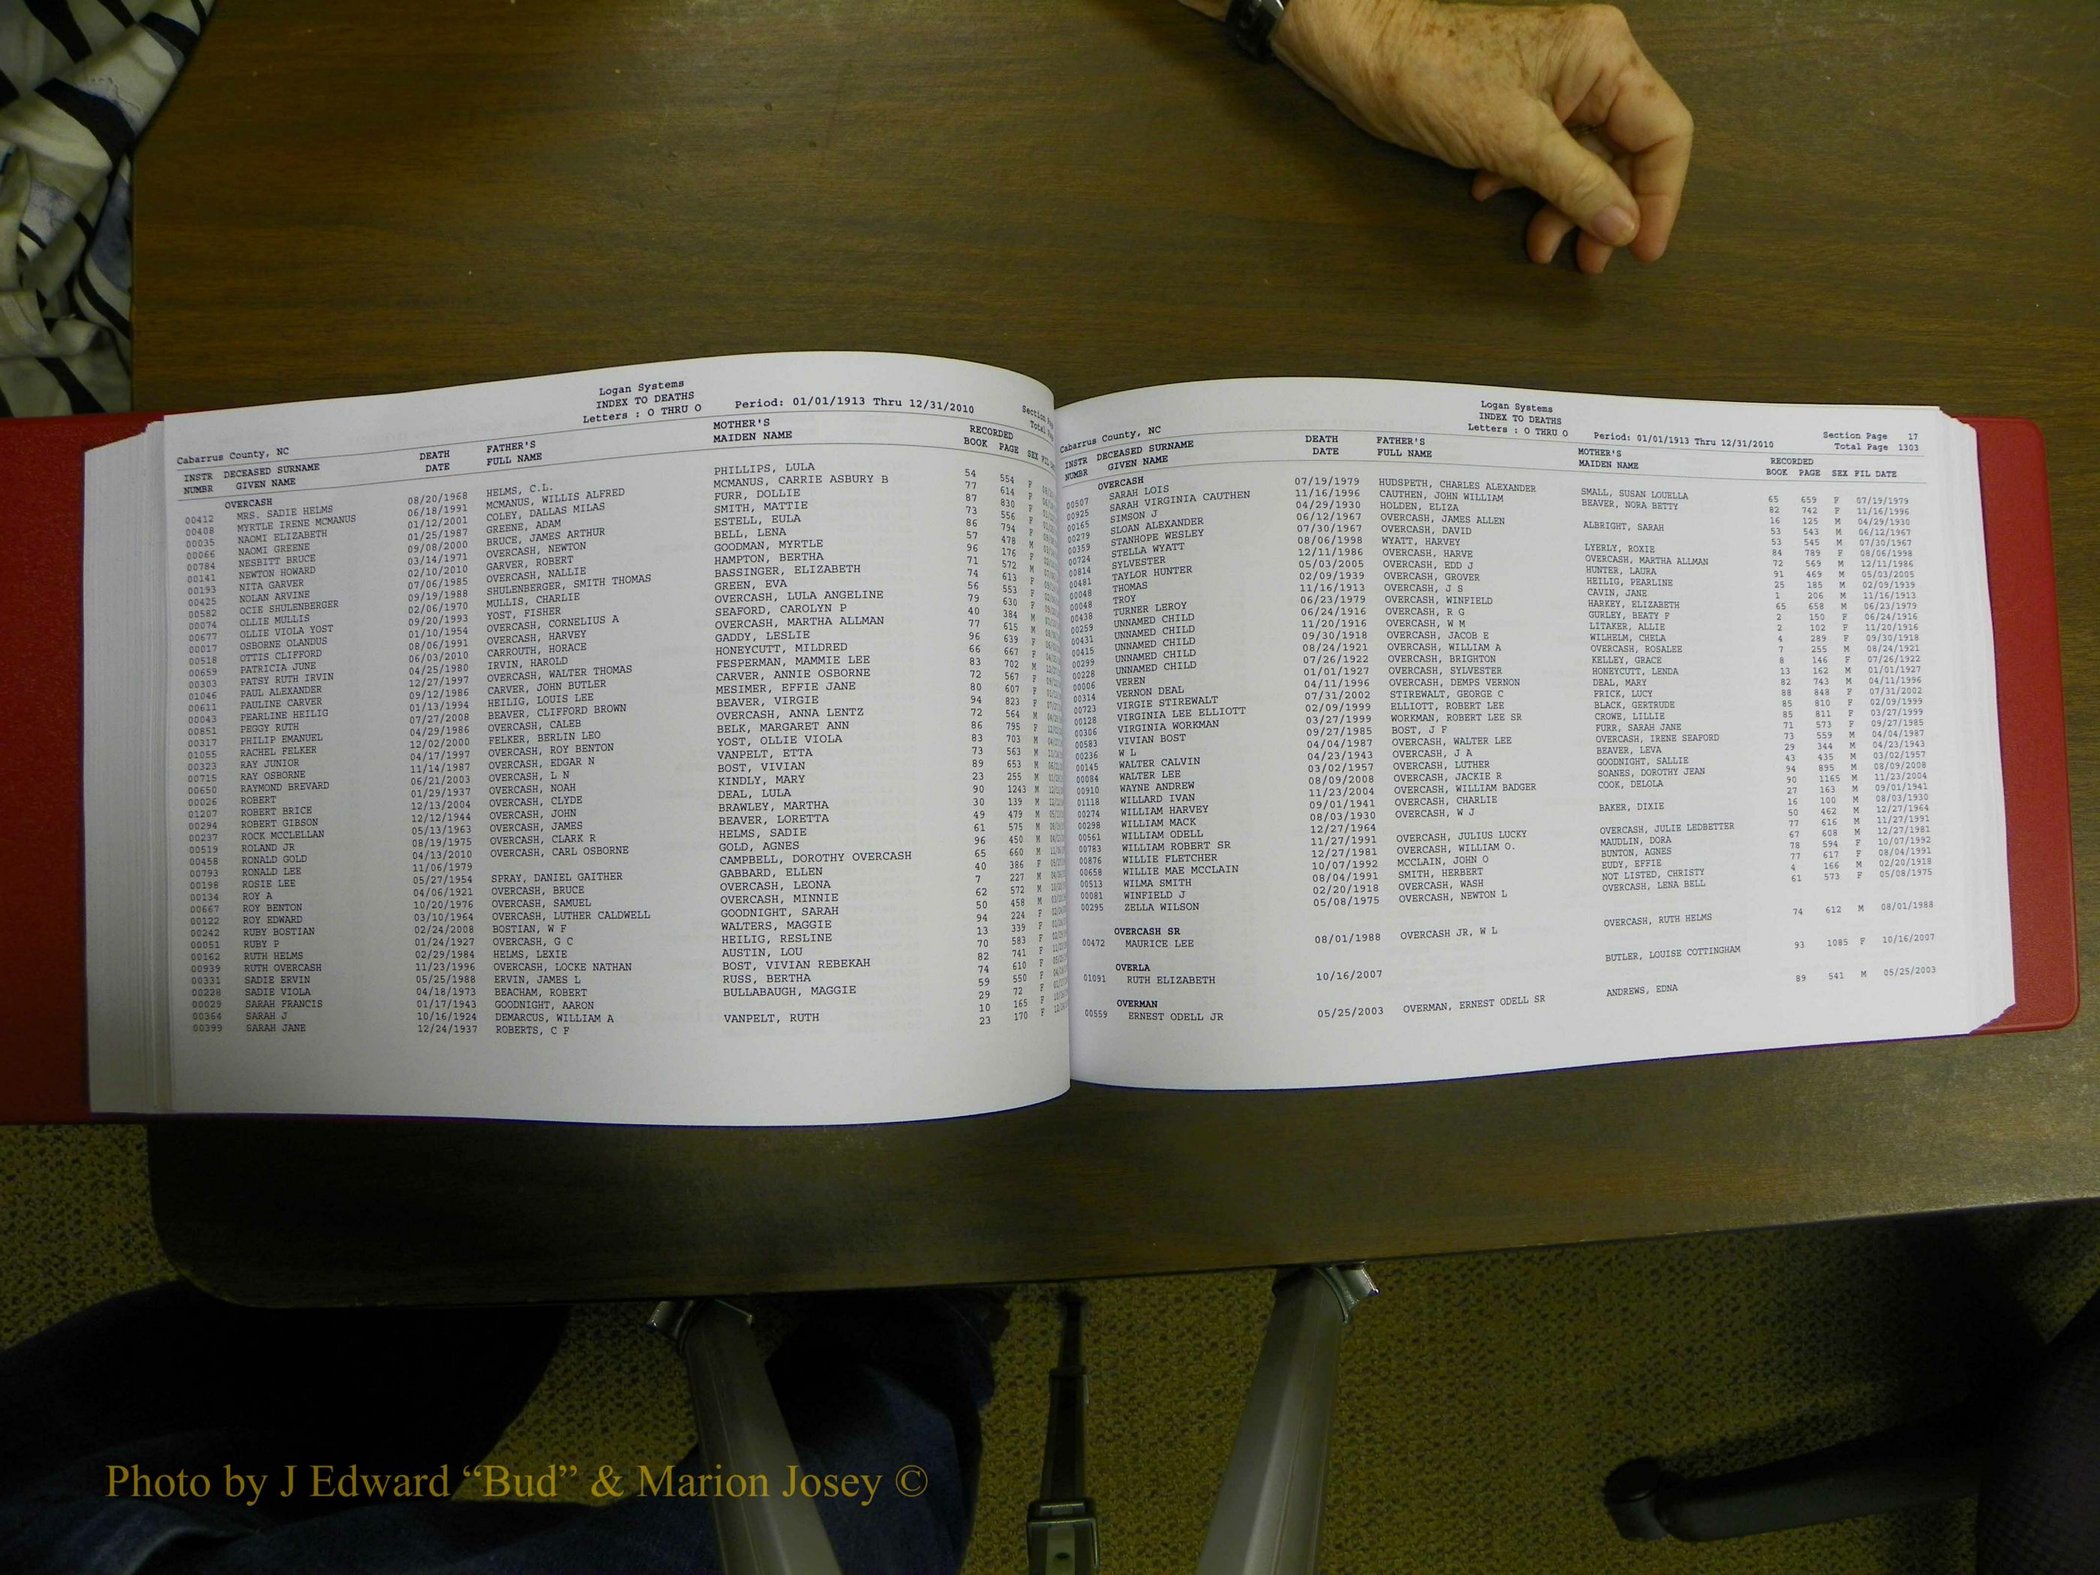 Logan Systems
INDEX TO DEATHS
Cabarrus County, NC Letters : O THRU O Period: 01/01/1913 Thru 12/31/2010
INSTR DECEASED SURNAME DEATH FATHER'S MOTHER'S RECORDED
NUMBR GIVEN NAME DATE FULL NAME MAIDEN NAME BOOK PAGE SEX
OVERCASH
00412 MRS. SADIE HELMS 08/20/1968 HELMS, C.L. PHILLIPS, LULA 54 554 F
00408 MYRTLE IRENE MCMANUS 06/18/1991 MCMANUS, WILLIS ALFRED MCMANUS, CARRIE ASBURY B 77 614 F
00035 NAOMI ELIZABETH 01/12/2001 COLEY, DALLAS MILAS FURR, DOLLIE 87 830 F
00066 NAOMI GREENE 01/25/1987 GREENE, ADAM SMITH, MATTIE 73 556 F
00784 NESBITT BRUCE 09/08/2000 BRUCE, JAMES ARTHUR ESTELL, EULA 86 794 F
00141 NEWTON HOWARD 03/14/1971 OVERCASH, NEWTON BELL, LENA 57 478 M
00193 NITA GARVER 02/10/2010 GARVER, ROBERT GOODMAN, MYRTLE 96 176 F
00425 NOLAN ARVINE 07/06/1985 OVERCASH, NALLIE HAMPTON, BERTHA 71 572 M
00582 OCIE SHULENBERGER 09/19/1988 SHULENBERGER, SMITH THOMAS BASSINGER, ELIZABETH 74 613 F
00074 OLLIE MULLIS 02/06/1970 MULLIS, CHARLIE GREEN, EVA 56 553 F
00677 OLLIE VIOLA YOST 09/20/1993 YOST, FISHER OVERCASH, LULA ANGELINE 79 630 F
00017 OSBORNE OLANDUS 01/10/1954 OVERCASH, CORNELIUS A SEAFORD, CAROLYN P 40 384 M
00518 OTTIS CLIFFORD 08/06/1991 OVERCASH, HARVEY OVERCASH, MARTHA ALLMAN 77 615 M
00659 PATRICIA JUNE 06/03/2010 CARROUTH, HORACE GADDY, LESLIE 96 639 F
00303 PATSY RUTH IRVIN 04/25/1980 IRVIN, HAROLD HONEYCUTT, MILDRED 66 667 F
01046 PAUL ALEXANDER 12/27/1997 OVERCASH, WALTER THOMAS FESPERMAN, MAMMIE LEE 83 702 M
00611 PAULINE CARVER 09/12/1986 CARVER, JOHN BUTLER CARVER, ANNIE OSBORNE 72 567 F
00043 PEARLINE HEILIG 01/13/1994 HEILIG, LOUIS LEE MESIMER, EFFIE JANE 80 607 F
00851 PEGGY RUTH 07/27/2008 BEAVER, CLIFFORD BROWN BEAVER, VIRGIE 94 823 F
00317 PHILIP EMANUEL 04/29/1986 OVERCASH, CALEB OVERCASH, ANNA LENTZ 72 564 M
01055 RACHEL FELKER 12/02/2000 FELKER, BERLIN LEO BELK, MARGARET ANN 86 795 F
00323 RAY JUNIOR 04/17/1997 OVERCASH, ROY BENTON YOST, OLLIE VIOLA 83 703 M
00715 RAY OSBORNE 11/14/1987 OVERCASH, EDGAR N VANPELT, ETTA 73 563 M
00650 RAYMOND BREVARD 06/21/2003 OVERCASH, L N BOST, VIVIAN 89 653 M
00026 ROBERT 01/29/1937 OVERCASH, NOAH KINDLY, MARY 23 255 M
01207 ROBERT BRICE 12/13/2004 OVERCASH, CLYDE DEAL, LULA 90 1243 M
00294 ROBERT GIBSON 12/12/1944 OVERCASH, JOHN BRAWLEY, MARTHA 30 139 M
00237 ROCK MCCLELLAN 05/13/1963 OVERCASH, JAMES BEAVER, LORETTA 49 479 M
00519 ROLAND JR 08/19/1975 OVERCASH, CLARK R HELMS, SADIE 61 575 M
00458 RONALD GOLD 04/13/2010 OVERCASH, CARL OSBORNE GOLD, AGNES 96 450 M
00793 RONALD LEE 11/06/1979 CAMPBELL, DOROTHY OVERCASH 65 660 M
00198 ROSIE LEE 05/27/1954 SPRAY, DANIEL GAITHER GABBARD, ELLEN 40 386 F
00134 ROY A 04/06/1921 OVERCASH, BRUCE OVERCASH, LEONA 7 227 M
00667 ROY BENTON 10/20/1976 OVERCASH, SAMUEL OVERCASH, MINNIE 62 572 M
00122 ROY EDWARD 03/10/1964 OVERCASH, LUTHER CALDWELL GOODNIGHT, SARAH 50 458 M
00242 RUBY BOSTIAN 02/24/2008 BOSTIAN, W F WALTERS, MAGGIE 94 224 F
00051 RUBY P 01/24/1927 OVERCASH, G C HEILIG, RESLINE 13 339 F
00162 RUTH HELMS 02/29/1984 HELMS, LEXIE AUSTIN, LOU 70 583 F
00939 RUTH OVERCASH 11/23/1996 OVERCASH, LOCKE NATHAN BOST, VIVIAN REBEKAH 82 741 F
00331 SADIE ERVIN 05/25/1988 ERVIN, JAMES L RUSS, BERTHA 74 610 F
00228 SADIE VIOLA 04/18/1973 BEACHAM, ROBERT BULLABAUGH, MAGGIE 59 550 F
00029 SARAH FRANCIS 01/17/1943 GOODNIGHT, AARON 29 72 F
00364 SARAH J 10/16/1924 DEMARCUS, WILLIAM A VANPELT, RUTH 10 165 F
00399 SARAH JANE 12/24/1937 ROBERTS, C F 23 170 F
Logan Systems
INDEX TO DEATHS
Cabarrus County, NC Letters : O THRU O Period: 01/01/1913 Thru 12/31/2010 Section Page 17
Total Page 1303
INSTR DECEASED SURNAME DEATH FATHER'S MOTHER'S RECORDED
NUMBR GIVEN NAME DATE FULL NAME MAIDEN NAME BOOK PAGE SEX FIL DATE
OVERCASH
00507 SARAH LOIS 07/19/1979 HUDSPETH, CHARLES ALEXANDER SMALL, SUSAN LOUELLA 65 659 F 07/19/1979
00925 SARAH VIRGINIA CAUTHEN 11/16/1996 CAUTHEN, JOHN WILLIAM BEAVER, NORA BETTY 82 742 F 11/16/1996
00165 SIMSON J 04/29/1930 HOLDEN, ELIZA 16 125 M 04/29/1930
00279 SLOAN ALEXANDER 06/12/1967 OVERCASH, JAMES ALLEN ALBRIGHT, SARAH 53 543 M 06/12/1967
00359 STANHOPE WESLEY 07/30/1967 OVERCASH, DAVID 53 545 M 07/30/1967
00724 STELLA WYATT 08/06/1998 WYATT, HARVEY LYERLY, ROXIE 84 789 F 08/06/1998
00814 SYLVESTER 12/11/1986 OVERCASH, HARVE OVERCASH, MARTHA ALLMAN 72 569 M 12/11/1986
00481 TAYLOR HUNTER 05/03/2005 OVERCASH, EDD J HUNTER, LAURA 91 469 M 05/03/2005
00048 THOMAS 02/09/1939 OVERCASH, GROVER HEILIG, PEARLINE 25 185 M 02/09/1939
00048 TROY 11/16/1913 OVERCASH, J S CAVIN, JANE 1 206 M 11/16/1913
00438 TURNER LEROY 06/23/1979 OVERCASH, WINFIELD HARKEY, ELIZABETH 65 658 M 06/23/1979
00259 UNNAMED CHILD 06/24/1916 OVERCASH, R G GURLEY, BEATY F 2 150 F 06/24/1916
00431 UNNAMED CHILD 11/20/1916 OVERCASH, W M LITAKER, ALLIE 2 102 F 11/20/1916
00415 UNNAMED CHILD 09/30/1918 OVERCASH, JACOB E WILHELM, CHELA 4 289 F 09/30/1918
00299 UNNAMED CHILD 08/24/1921 OVERCASH, WILLIAM A OVERCASH, ROSALEE 7 255 M 08/24/1921
00228 UNNAMED CHILD 07/26/1922 OVERCASH, BRIGHTON KELLEY, GRACE 8 146 F 07/26/1922
00006 VEREN 01/01/1927 OVERCASH, SYLVESTER HONEYCUTT, LENDA 13 162 M 01/01/1927
00314 VERNON DEAL 04/11/1996 OVERCASH, DEMPS VERNON DEAL, MARY 82 743 M 04/11/1996
00723 VIRGIE STIREWALT 07/31/2002 STIREWALT, GEORGE C FRICK, LUCY 88 848 F 07/31/2002
00128 VIRGINIA LEE ELLIOTT 02/09/1999 ELLIOTT, ROBERT LEE BLACK, GERTRUDE 85 810 F 02/09/1999
00306 VIRGINIA WORKMAN 03/27/1999 WORKMAN, ROBERT LEE SR CROWE, LILLIE 85 811 F 03/27/1999
00583 VIVIAN BOST 09/27/1985 BOST, J F FURR, SARAH JANE 71 573 F 09/27/1985
00236 W L 04/04/1987 OVERCASH, WALTER LEE OVERCASH, IRENE SEAFORD 73 559 M 04/04/1987
00145 WALTER CALVIN 04/23/1943 OVERCASH, J A BEAVER, LEVA 29 344 M 04/23/1943
00084 WALTER LEE 03/02/1957 OVERCASH, LUTHER GOODNIGHT, SALLIE 43 435 M 03/02/1957
00910 WAYNE ANDREW 08/09/2008 OVERCASH, JACKIE R SOANES, DOROTHY JEAN 94 895 M 08/09/2008
01118 WILLARD IVAN 11/23/2004 OVERCASH, WILLIAM BADGER COOK, DELOLA 90 1165 M 11/23/2004
00274 WILLIAM HARVEY 09/01/1941 OVERCASH, CHARLIE 27 163 M 09/01/1941
00298 WILLIAM MACK 08/03/1930 OVERCASH, W J BAKER, DIXIE 16 100 M 08/03/1930
00561 WILLIAM ODELL 12/27/1964 50 462 M 12/27/1964
00783 WILLIAM ROBERT SR 11/27/1991 OVERCASH, JULIUS LUCKY OVERCASH, JULIE LEDBETTER 77 616 M 11/27/1991
00876 WILLIE FLETCHER 12/27/1981 OVERCASH, WILLIAM O. MAUDLIN, DORA 67 608 M 12/27/1981
00658 WILLIE MAE MCCLAIN 10/07/1992 MCCLAIN, JOHN O BUNTON, AGNES 78 594 F 10/07/1992
00513 WILMA SMITH 08/04/1991 SMITH, HERBERT EUDY, EFFIE 77 617 F 08/04/1991
00081 WINFIELD J 02/20/1918 OVERCASH, WASH NOT LISTED, CHRISTY 4 166 M 02/20/1918
00295 ZELLA WILSON 05/08/1975 OVERCASH, NEWTON L OVERCASH, LENA BELL 61 573 F 05/08/1975
OVERCASH SR
00472 MAURICE LEE 08/01/1988 OVERCASH JR, W L OVERCASH, RUTH HELMS 74 612 M 08/01/1988
OVERLA
01091 RUTH ELIZABETH 10/16/2007 BUTLER, LOUISE COTTINGHAM 93 1085 F 10/16/2007
OVERMAN
00559 ERNEST ODELL JR 05/25/2003 OVERMAN, ERNEST ODELL SR ANDREWS, EDNA 89 541 M 05/25/2003
Photo by J Edward “Bud” & Marion Josey ©